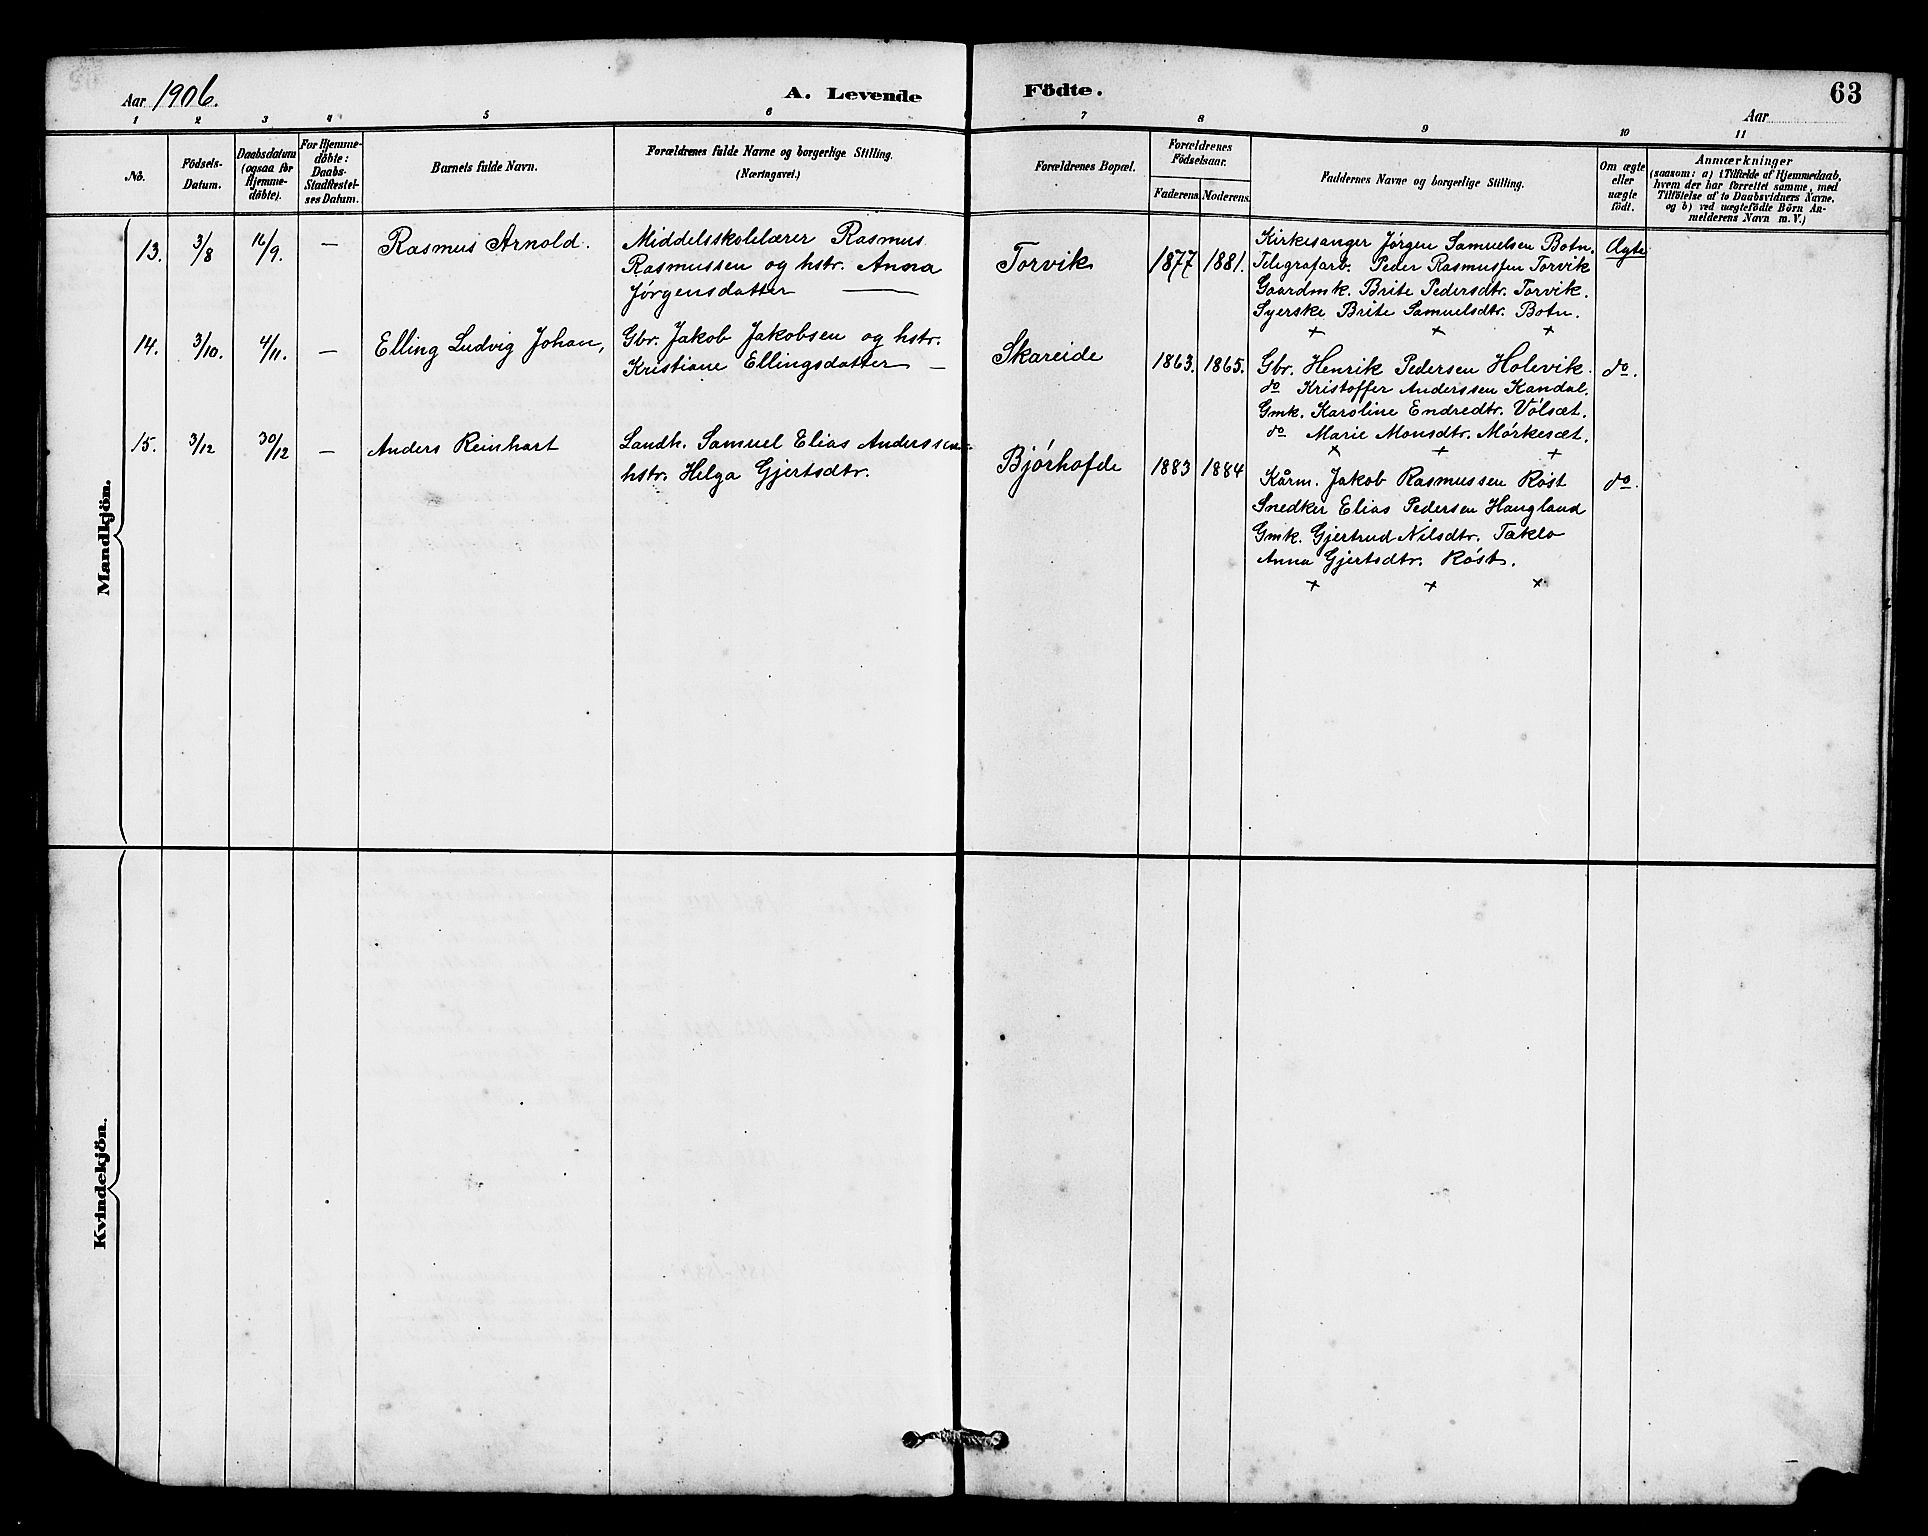 Aar 1906.
A. Levende Födte.
63
Aar
1 2 3 4 5 6 7 8 9 10 11
No.
Födsels-
Datum.
Daabsdatum
(ogsaa for
Hjemme-
döbte).
For Hjemme-
döbte:
Daabs-
Stadfæstel-
ses Datum.
Barnets fulde Navn.
Forældrenes fulde Navne og borgerlige Stilling.
(Næringsvei.)
Forældrenes Bopæl.
Forældrenes
Födselsaar.
Faderens. Moderens.
Faddernes Navne og borgerlige Stilling.
Om ægte
eller
uægte
födt.
Anmærkninger
(saasom: a) i Tilfælde af Hjemmedaab,
hvem der har forrettet samme, med
Tilföielse af to Daabsvidners Navne,
og b) ved uægtefödte Börn An-
melderens Navn m. V.)
Mandkjön.
13. 3/8 16/9. — Rasmus Arnold.
Middelsskolelærer Rasmus
Rasmussen og hstr. Anna
Jørgensdatter —
Torvik 1877 1881.
Kirkesanger Jørgen Samuelsen Botn.
Telegrafarb. Peder Rasmussen Torvik
Gaardmk. Brite Pedersdtr. Torvik.
Syerske Brite Samuelsdtr. Botn.
+ + +
Ægte
14. 3/10. 4/11. — Elling Ludvig Johan,
Gbr. Jakob Jakobsen og hstr.
Kristiane Ellingsdatter —
Skareide 1863. 1865.
Gbr. Henrik Pedersen Holevik.
do Kristoffer Anderssen Kandal.
Gmk. Karoline Endredtr. Vólsæt.
do Marie Monsdtr. Mórkesæt.
+ + +
do.
15. 3/12 30/12 — Anders Reinhart
Landh. Samuel Elias Anderssen
hstr. Helga Gjertsdtr.
Bjórhofde 1883 1884
Kårm. Jakob Rasmussen Róst
Snedker Elias Pedersen Haugland
Gmk. Gjertrud Nilsdtr. Taklo
Anna Gjertsdtr. Róst.
+ + +
do.
Kvindekjön.